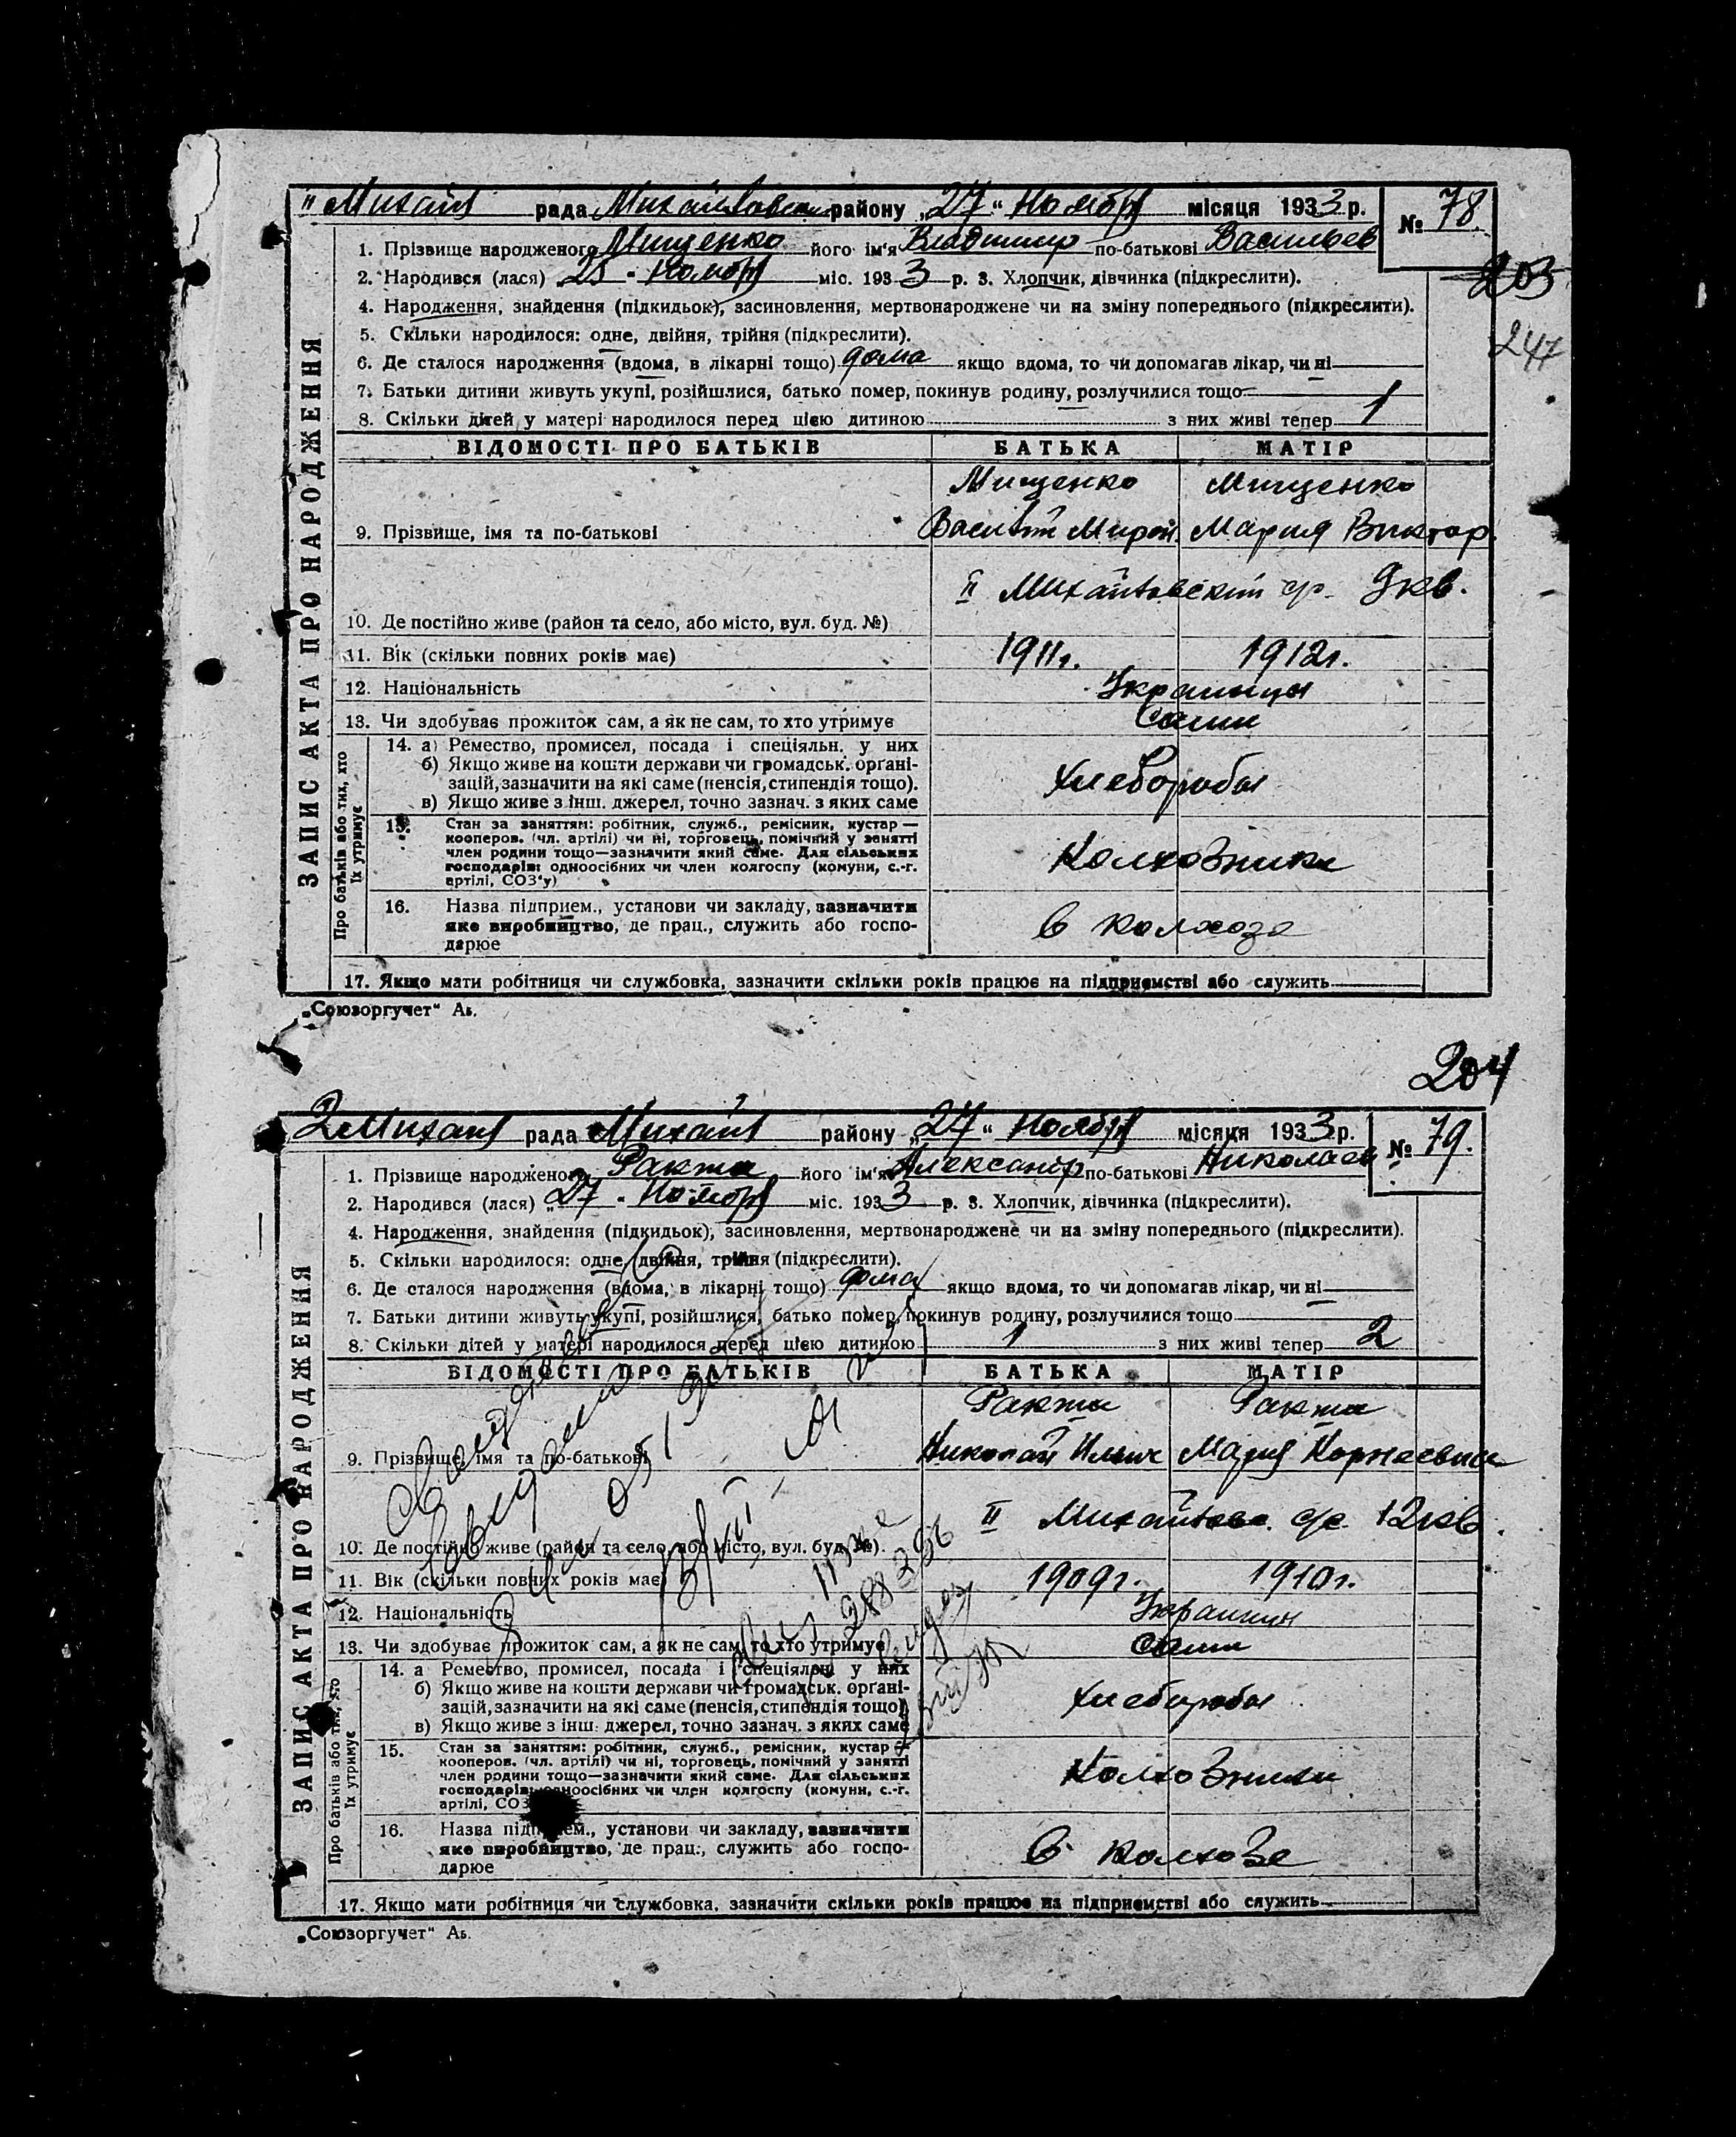 II Михайл рада Михайловском району „27“ Ноября місяця 1933 р. № 78.
203
1. Прізвище народженого Мищенко його ім'я Владимир по-батькові Васильев
2. Народився (лася) 25 - Ноября міс. 1933 р. 3. Хлопчик, дівчинка (підкреслити).
4. Народження, знайдення (підкидьок), засиновлення, мертвонароджене чи на зміну попереднього (підкреслити).
5. Скільки народилося: одне, двійня, трійня (підкреслити).
247
6. Де сталося народження (вдома, в лікарні тощо) дома якщо вдома, то чи допомагав лікар, чи ні
7. Батьки дитини живуть укупі, розійшлися, батько помер, покинув родину, розлучилися тощо
8. Скільки дітей у матері народилося перед цією дитиною з них живі тепер 1
ВІДОМОСТІ ПРО БАТЬКІВ БАТЬКА МАТІР
Мищенко Мищенко
9. Прізвище, імя та по-батькові Василий Мирон. Мария Виктор.
II Михайловский ср. 9 кв.
10. Де постійно живе (район та село, або місто, вул. буд. №)
11. Вік (скільки повних років має) 1911г. 1912г.
12. Національність Украинцы
13. Чи здобуває прожиток сам, а як не сам, то хто утримує Сами
14. а) Ремество, промисел, посада і спеціяльн. у них
б) Якщо живе на кошти держави чи громадськ. органі-
зацій, зазначити на які саме (пенсія, стипендія тощо). Хлеборобы
в) Якщо живе з інш. джерел, точно зазнач. з яких саме
15. Стан за заняттям: робітник, служб., ремісник, кустар —
кооперов. (чл. артілі) чи ні, торговець, помічний у занятті
член родини тощо—зазначити який саме. Для сільських
господарів: одноосібних чи член колгоспу (комуни, с.-г. Колхозники
артілі, СОЗ'у)
16. Назва підприєм., установи чи закладу, зазначити
яке виробництво, де прац., служить або госпо- в колхозе
дарює
17. Якщо мати робітниця чи службовка, зазначити скільки років працює на підприємстві або служить
ЗАПИС АКТА ПРО НАРОДЖЕННЯ
Про батьків або тих, хто
їх утримує
„Союзоргучет“ Аь.
204
2 Михайл рада Михайл району „27“ Ноября місяця 1933 р. № 79.
1. Прізвище народженого Ракта його ім'я Александр по-батькові Николаев
2. Народився (лася) „27 - Ноября міс. 1933 р. 3. Хлопчик, дівчинка (підкреслити).
4. Народження, знайдення (підкидьок), засиновлення, мертвонароджене чи на зміну попереднього (підкреслити).
5. Скільки народилося: одне, двійня, трійня (підкреслити).
6. Де сталося народження (вдома, в лікарні тощо) дома якщо вдома, то чи допомагав лікар, чи ні
7. Батьки дитини живуть укупі, розійшлися, батько помер, покинув родину, розлучилися тощо
8. Скільки дітей у матері народилося перед цією дитиною 1 з них живі тепер 2
ВІДОМОСТІ ПРО БАТЬКІВ БАТЬКА МАТІР
Ракта Ракта
9. Прізвище, імя та по-батькові Николай Ильич Мария Корнеевна
II Михайловс. с/с. 12 кв.
10. Де постійно живе (район та село, або місто, вул. буд. №).
11. Вік (скільки повних років має) 1909г. 1910г.
12. Національність Украинцы
13. Чи здобуває прожиток сам, а як не сам, то хто утримує сами
14. а Ремество, промисел, посада і спеціяльн. у них
б) Якщо живе на кошти держави чи громадськ. органі-
зацій, зазначити на які саме (пенсія, стипендія тощо) хлеборобы
в) Якщо живе з інш. джерел, точно зазнач. з яких саме
15. Стан за заняттям: робітник, служб., ремісник, кустар —
кооперов. (чл. артілі) чи ні, торговець, помічний у занятті
член родини тощо—зазначити який саме. Для сільських Колхозники
господарів: одноосібних чи член колгоспу (комуни, с.-г.
артілі, СОЗ
16. Назва підприєм., установи чи закладу, зазначити
яке виробництво, де прац., служить або госпо- в колхозе
дарюе
17. Якщо мати робітниця чи службовка, зазначити скільки років працює на підприємстві або служить
ЗАПИС АКТА ПРО НАРОДЖЕННЯ
Про батьків або тих, хто
їх утримує
„Союзоргучет“ Аь.